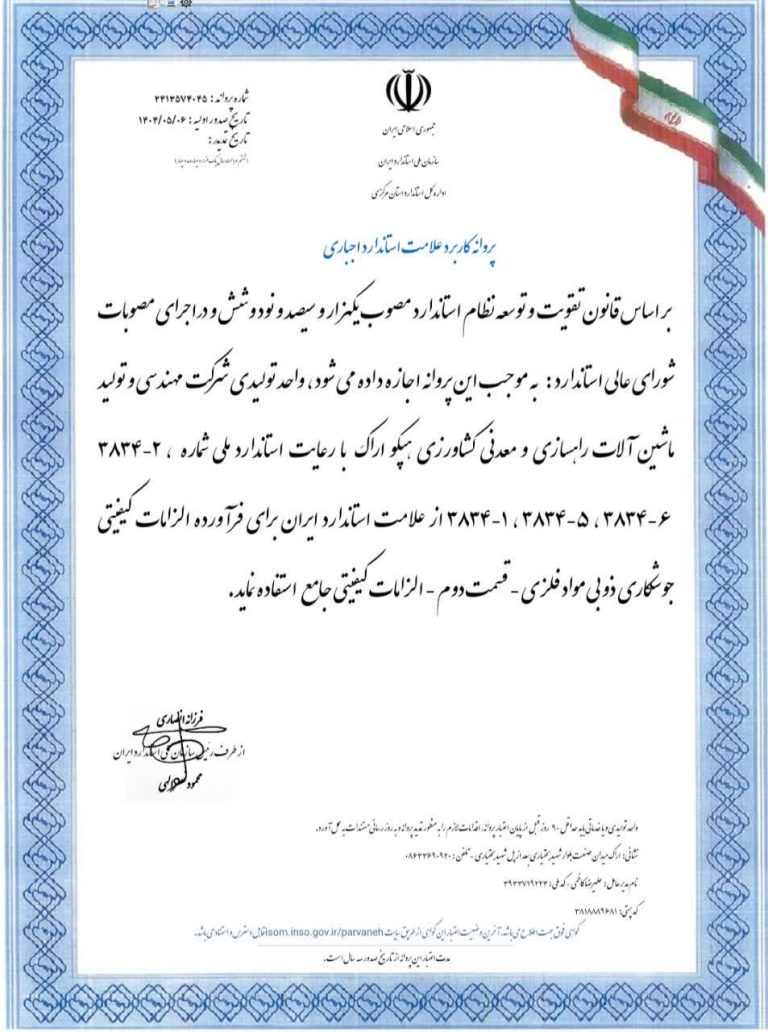 شماره پروانه : ۲۴۱۳۵۷۴۰۴۵
تاریخ صدور اولیه : ۱۴۰۴/۰۵/۰۶
تاریخ تمدید :
جمهوری اسلامی ایران
سازمان ملی استاندارد ایران
اداره کل استاندارد استان مرکزی
پروانه کاربرد علامت استاندارد اجباری
بر اساس قانون تقویت و توسعه نظام استاندارد مصوب یکهزار و سیصد و نود و شش و در اجرای مصوبات
شورای عالی استاندارد : به موجب این پروانه اجازه داده می شود ، واحد تولیدی شرکت مهندسی و تولید
ماشین آلات راهسازی و معدنی کشاورزی هپکو اراک با رعایت استاندارد ملی شماره ، ۲-۳۸۳۴
۶-۳۸۳۴ ، ۵-۳۸۳۴ ، ۱-۳۸۳۴ از علامت استاندارد ایران برای فرآورده الزامات کیفیتی
جوشکاری ذوبی مواد فلزی - قسمت دوم - الزامات کیفیتی جامع استفاده نماید .
فرزانه انصاری
از طرف رئیس سازمان ملی استاندارد ایران
محمود
واحد تولیدی و یا خدماتی باید حداقل ۹۰ روز قبل از پایان اعتبار پروانه، اقدامات لازم را به منظور تمدید پروانه و به روز رسانی مستندات به عمل آورد.
نشانی : اراک میدان صنعت بلوار شهید بختیاری بعد از پل شهید بختیاری - تلفن : ۰۸۶۳۳۶۹۰۹۲۰
نام مدیر عامل : علیرضا کاظمی - کد ملی : ۳۹۳۳۷۱۹۲۲۴
کد پستی : ۳۸۱۸۸۸۹۶۸۱
گواهی فوق جهت اطلاع می باشد، آخرین وضعیت اعتبار این گواهی از طریق سایت isom.inso.gov.ir/parvaneh قابل دسترس و استناد می باشد.
مدت اعتبار این پروانه از تاریخ صدور سه سال است.